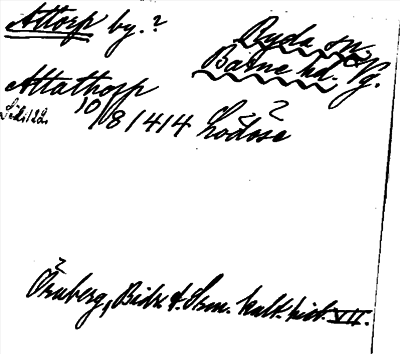 Attorp by.?
Ryda sn.
Barne hd. Vg.
Attathorp
10/8 1414 Lödöse
Örnberg, Bidr. t. Srm. kult. hist. VII.